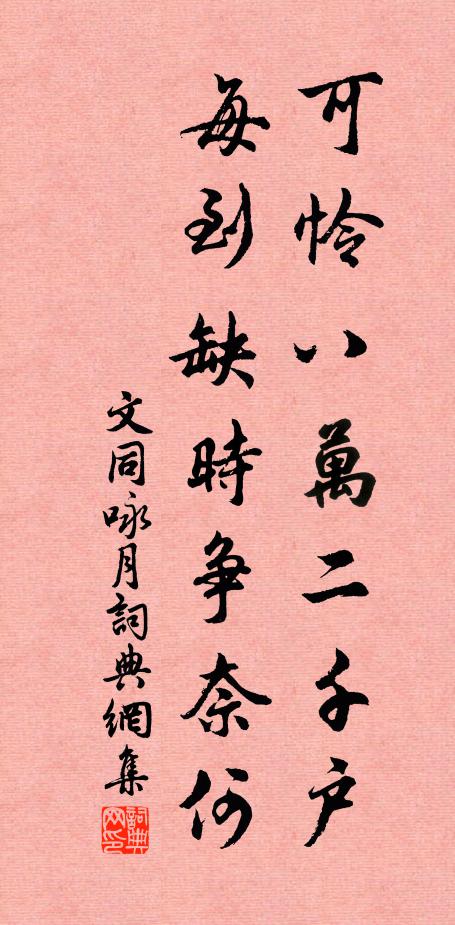 可怜八萬二千户
每到缺時争奈何
文同咏月詞典網集
詞典网印